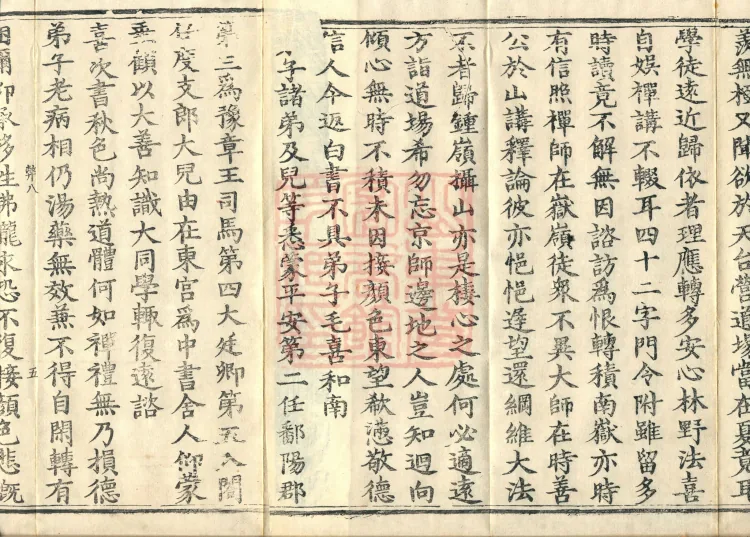 羨無極又聞欲於天台營道場當在夏竟耳
學徒遠近歸依者理應轉多安心林野法喜
自娛禪講不輟耳四十二字門今附雖留多
時讀竟不解無因諮訪為恨轉積南嶽亦時
有信照禪師在嶽嶺徒衆不異大師在時善
公於山講釋論彼亦悒悒遲望還綱維大法
不者歸鍾嶺攝山亦是棲心之處何必適遠
方詣道場希勿忘京師邊地之人豈知迴向
傾心無時不積未因接顏色東望欷懣敬德
信人今返白書不具弟子毛喜和南
子諸弟及兒等悉蒙平安第二任鄱陽郡
第三為豫章王司馬第四大廷卿第五入閣
度支郎大兒由在東宮為中書舍人仰蒙
垂顧以大善知識大同學輙復遠諮
喜次書秋色尚熱道體何如禪禮無乃損德
弟子老病相仍湯藥無效兼不得自閑轉有
仰多生弗 恐不復接顏色悲慨